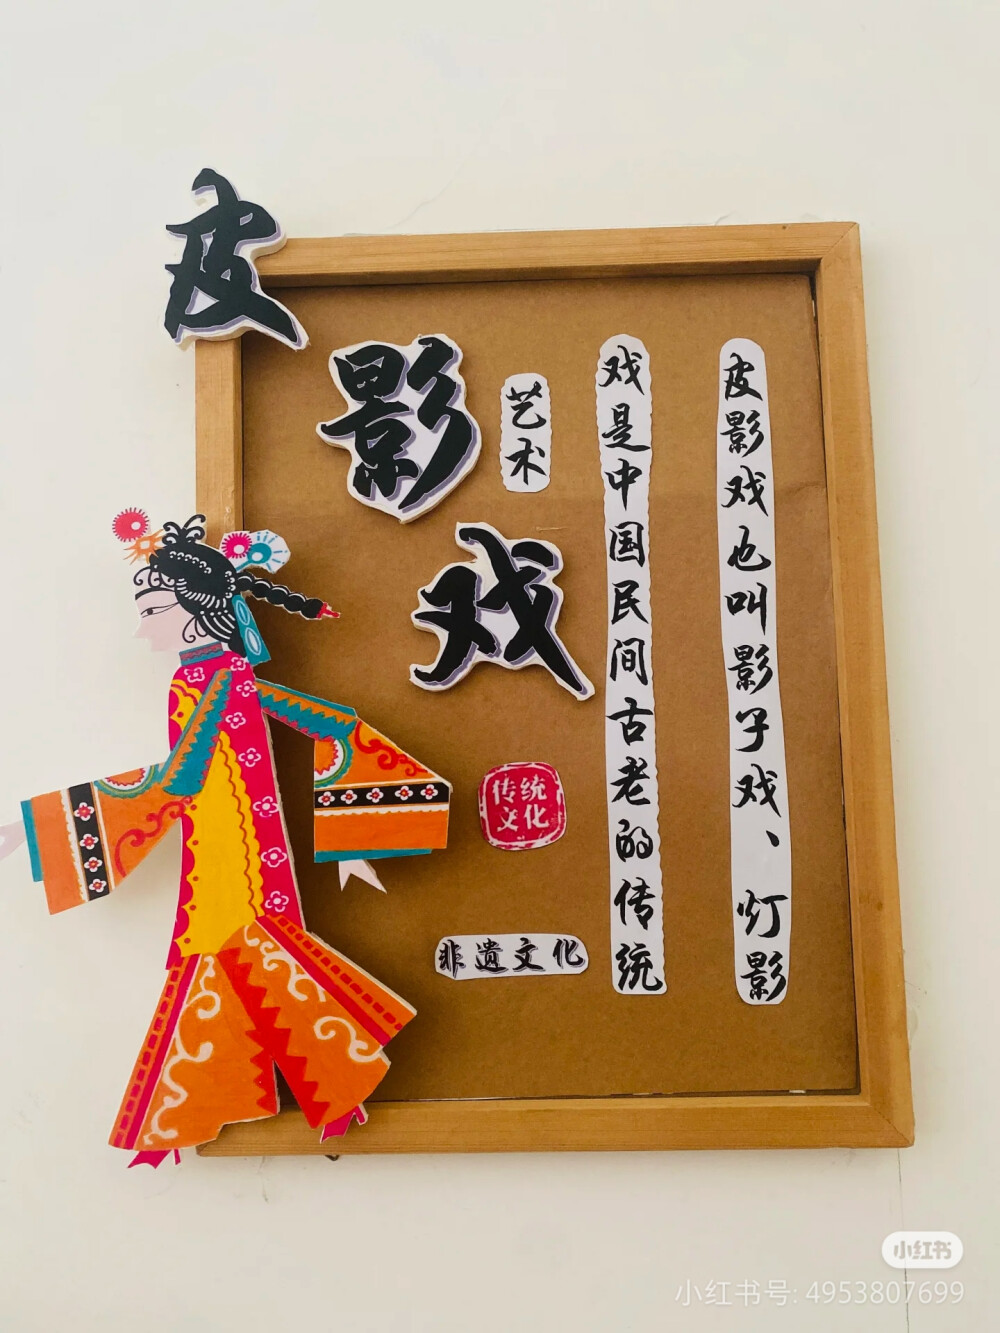 皮影戏
皮影戏也叫影子戏、灯影
戏是中国民间古老的传统
艺术
传统
文化
非遗文化
小红书
小红书号: 4953807699